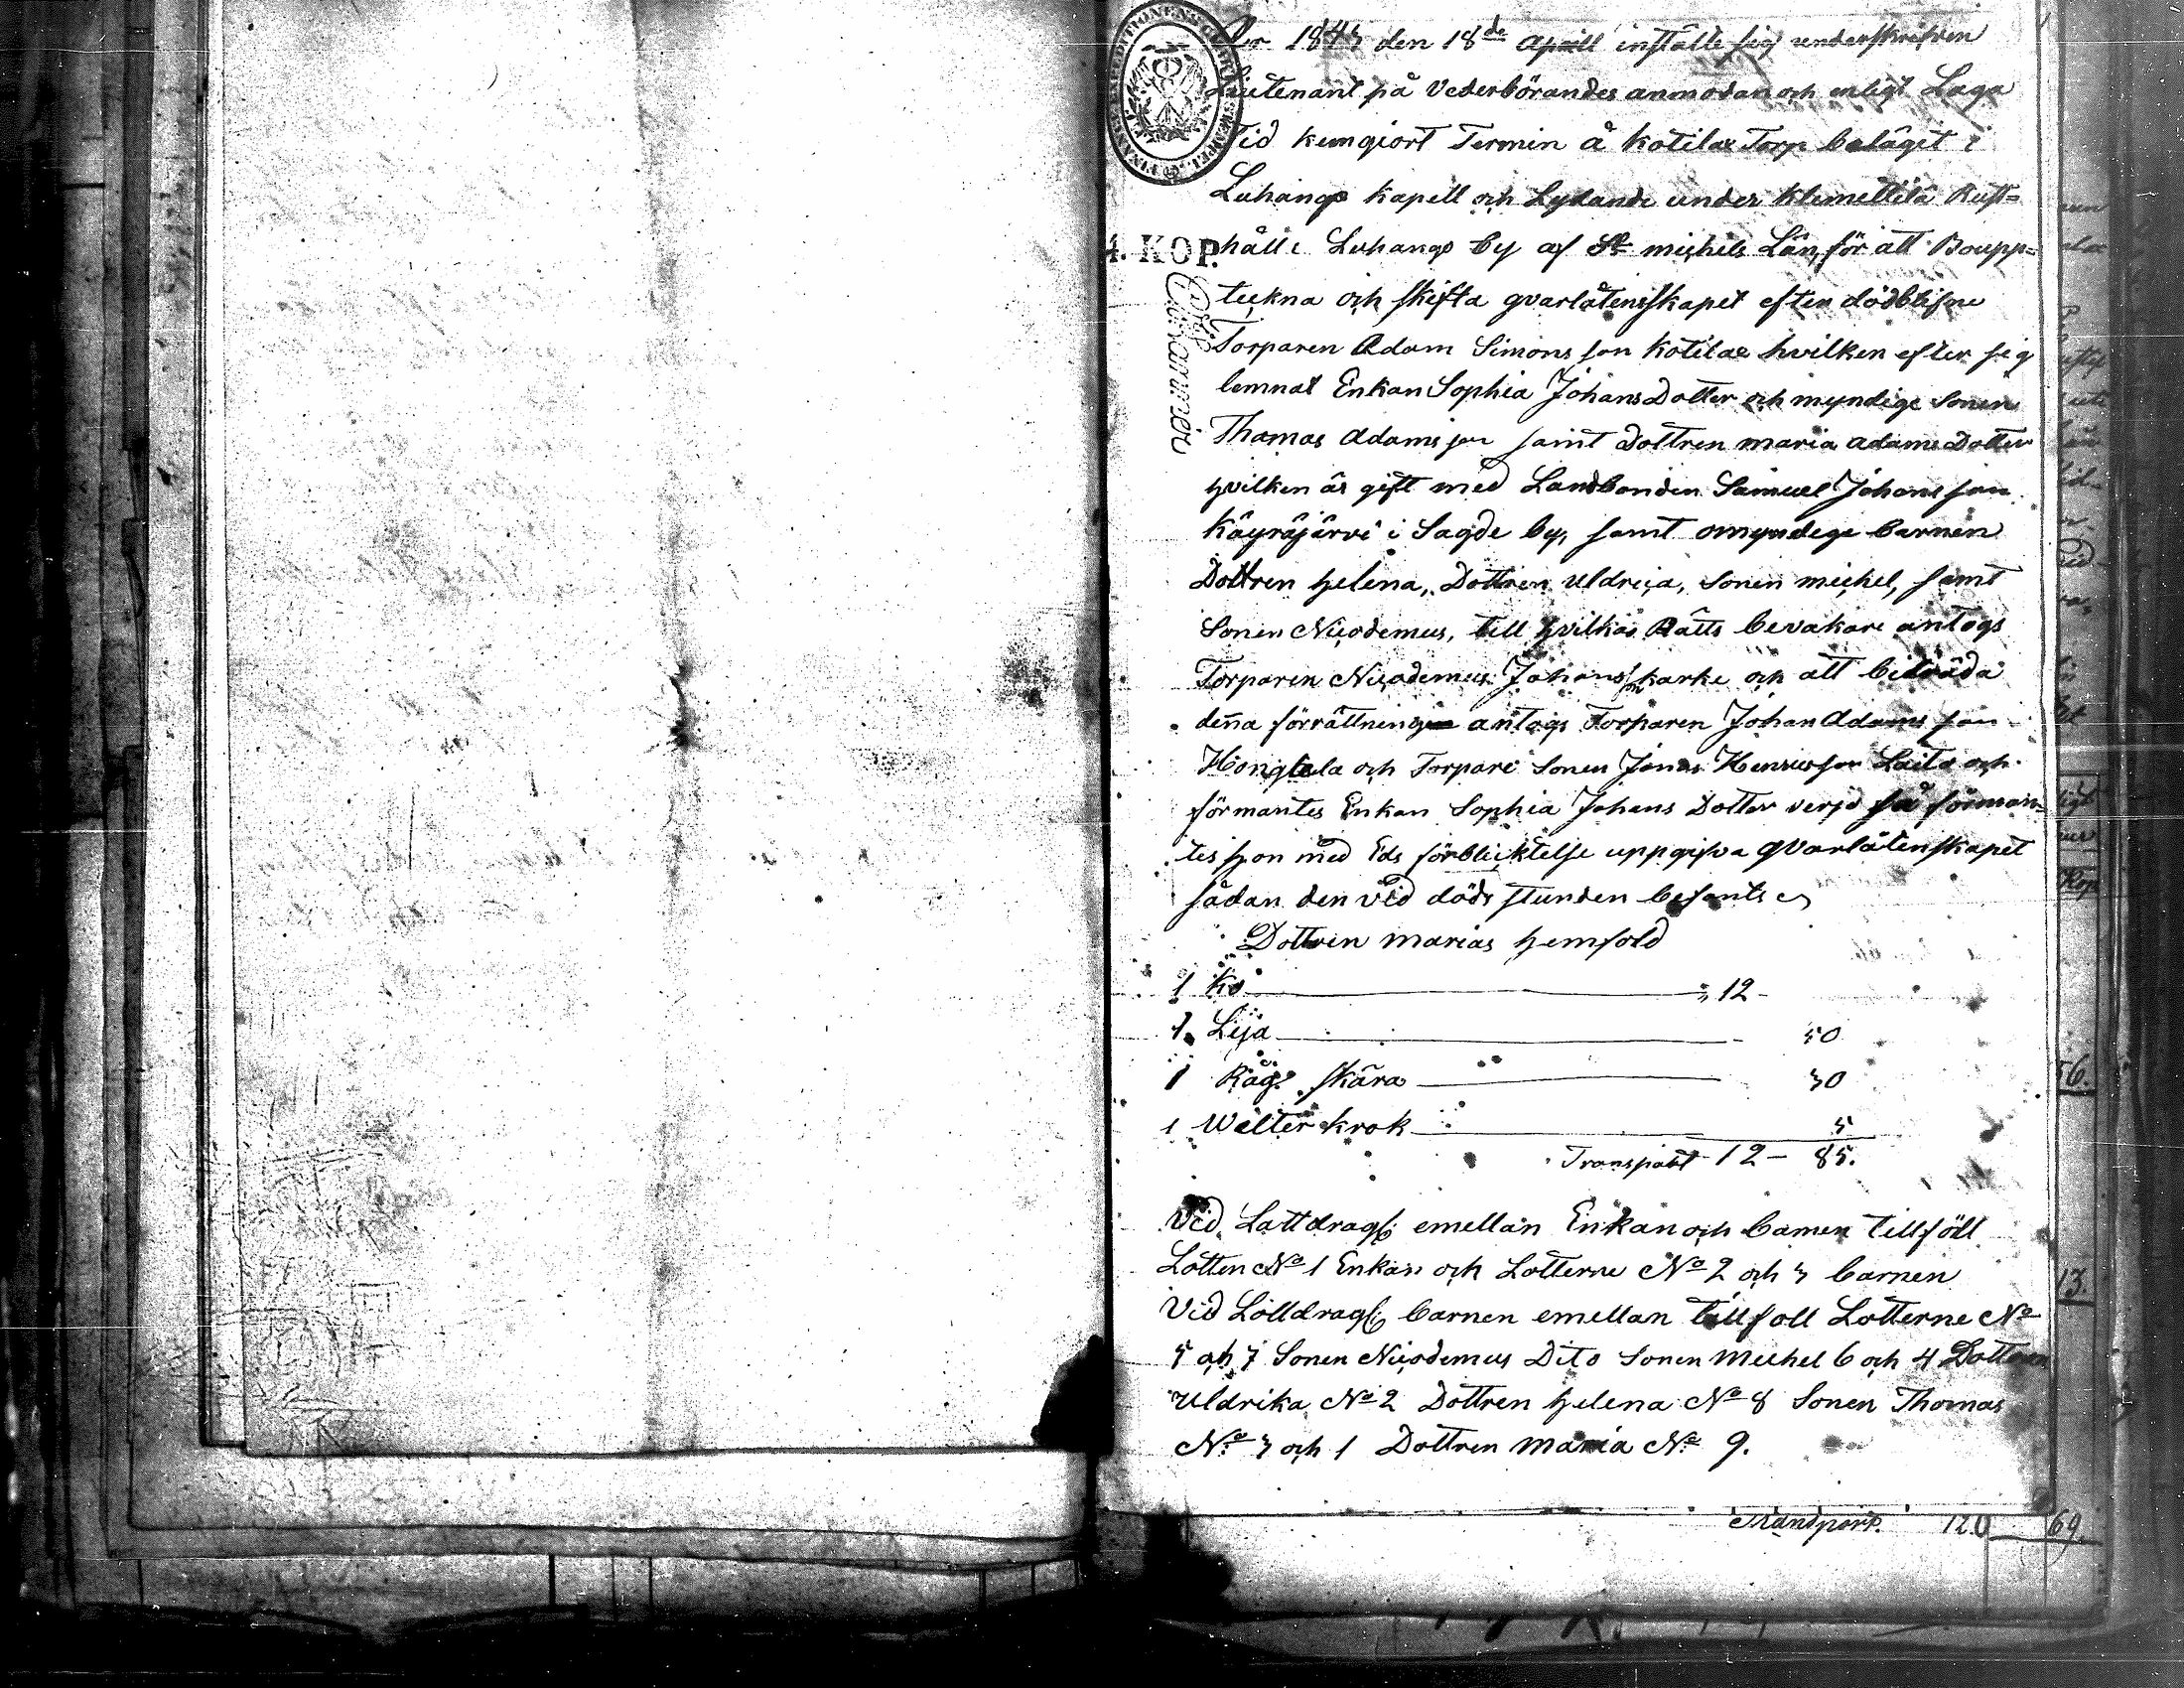 År 1845 den 18de Aprill instälte sig underskrifven
Lieutenant på Vederbörandes anmodan och enligt Laga
Tid kungiort Termin å Kotilax Torp beläget i
Luhango Kapell och Lydande under Klemettilä Rust=
håll i Luhango by af St michels Län, för att Boupp=
4. KOP.
tekna och skifta qvarlåtensskapet efter dödblifne
Torparen Adam Simons son Kotilax hvilken efter sig
lemnat Enkan Sophia Johans Dotter och myndige Sonen
Thomas Adams son samt Dottren maria adams Dotter
hvilken är gift med Landbonden Samuel Johans son
Käyräjärvi i Sagde by, samt omyndege barnen
Dottren Helena, Dottren Uldrica, Sonen michel, samt
Sonen Nicodemus, till hvilkas Rätts bevakare antogs
Torparen Nicodemus Johans son karke och att biträda
denna förrättning antogs Torparen Johan Adams son
och Torpare Sonen Jonas Henricson Laita och
förmantes Enkan Sophia Johans Dotter förman=
tes hon med Eds förblicktelse uppgifva qvarlåtenskapet
sådan den vid döds stunden befants
Dottren marias hemföld
1 Ko 12 -
1 Lija 50
1 Råg skära 30
1 Wälter krok 5
Transport 12 - 85.
Vid Lattdrag emellan Enkan och barnen tillföll
Lotten No 1 Enkan och Lotterne No 2 och 3 barnen
Vid Lolldrag barnen emellan tillfoll Lotterne No
5 och 7 Sonen Nicodemus Dito Sonen Michel 6 och 4 Dottren
Uldrika No 2 Dottren Helena No 8 Sonen Thomas
No 3 och 1 Dottren maria No 9.
Transport 120 69